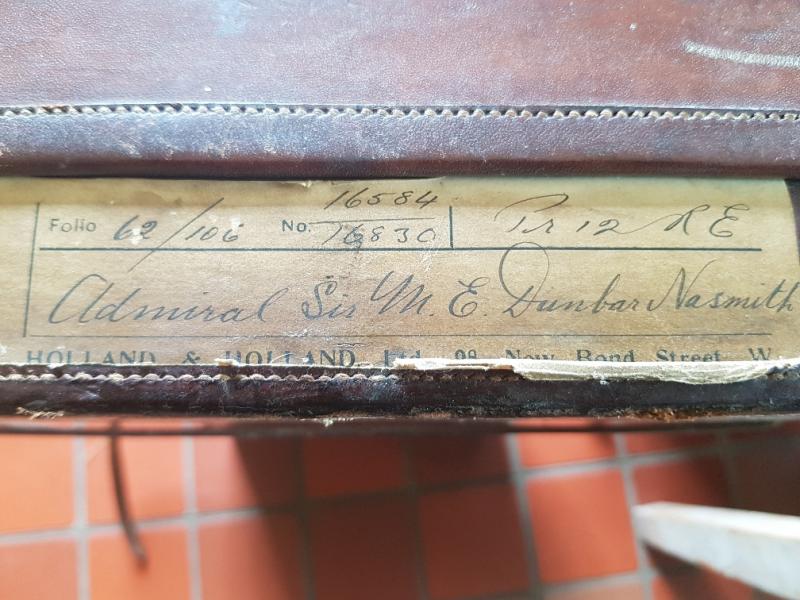 Folio 62/106 No. 16584
16830 Pr 12 R E
Admiral Sir M. E. Dunbar Nasmith
HOLLAND & HOLLAND Ltd. 98 New Bond Street W